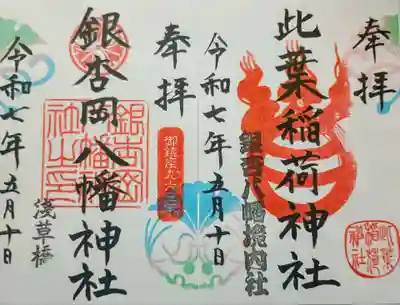 奉拝
此葉稲荷神社
銀杏八幡境内社
令和七年五月十日
此葉稲荷神社
奉拝
銀杏岡八幡神社
浅草橋
銀杏岡八幡神社之印
令和七年五月十日